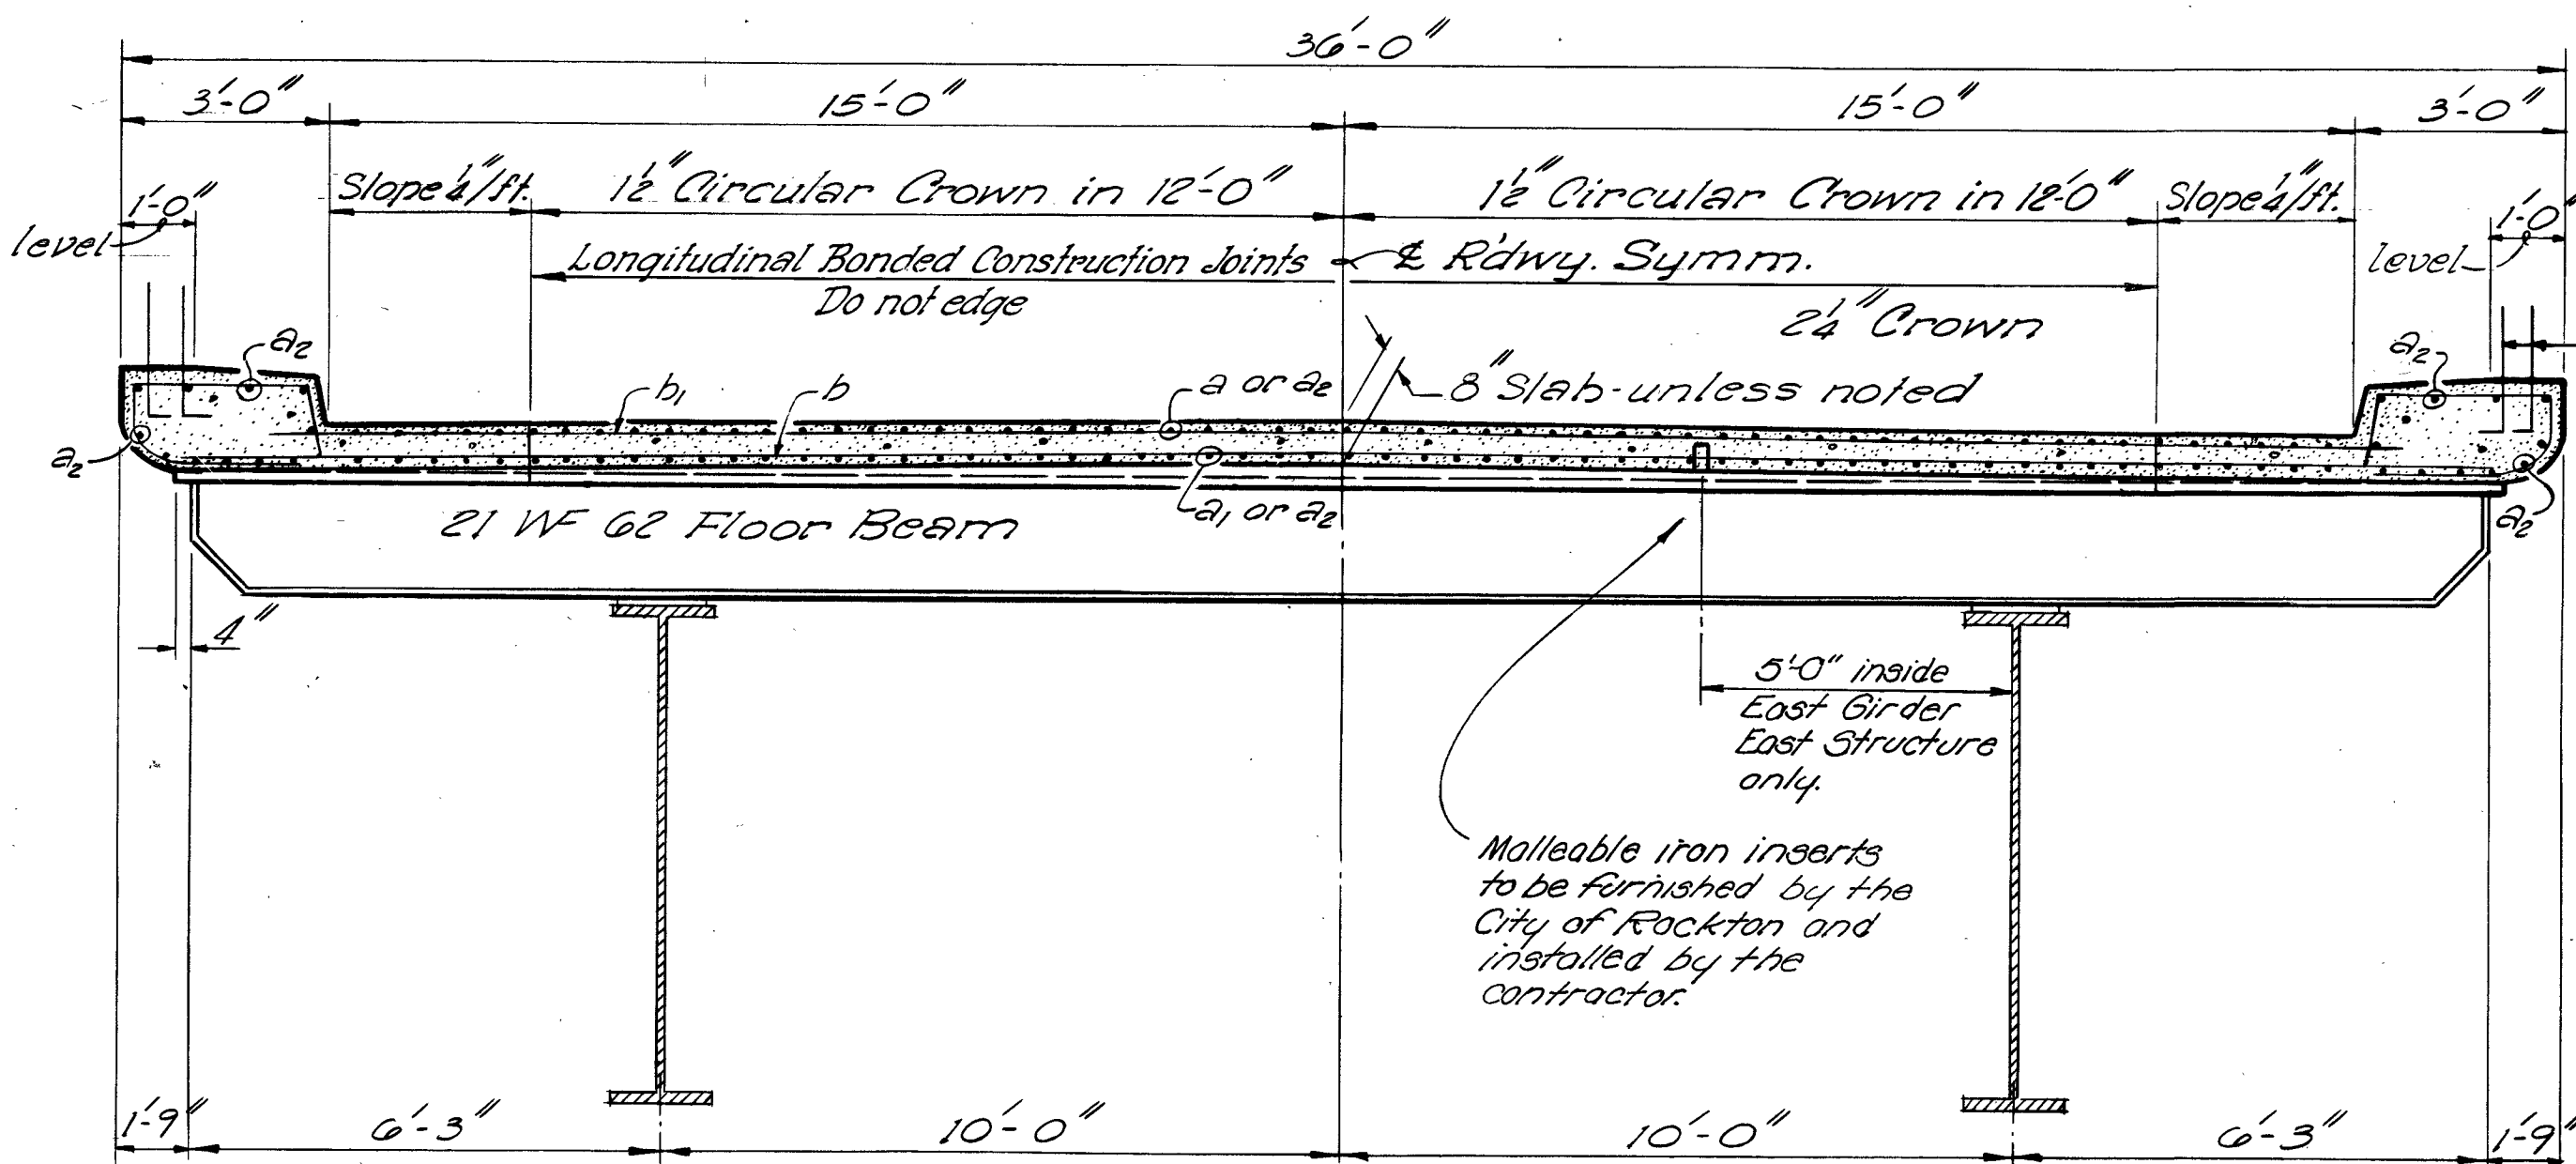 36'-0"
3'-0" 15'-0" 15'-0" 3'-0"
1'-0" Slope 1/4"/ft. 1 1/2" Circular Crown in 12'-0" 1 1/2" Circular Crown in 12'-0" Slope 1/4"/ft. 1'-0"
level Longitudinal Bonded Construction Joints ℄ R'dwy. Symm. level
Do not edge
2 1/4" Crown
a2 b1 b a or a2 8" Slab-unless noted a2
a2 a1 or a2 a2
21 WF 62 Floor Beam
4"
5'-0" inside
East Girder
East Structure
only.
Malleable iron inserts
to be furnished by the
City of Rockton and
installed by the
contractor.
1'-9" 6'-3" 10'-0" 10'-0" 6'-3" 1'-9"